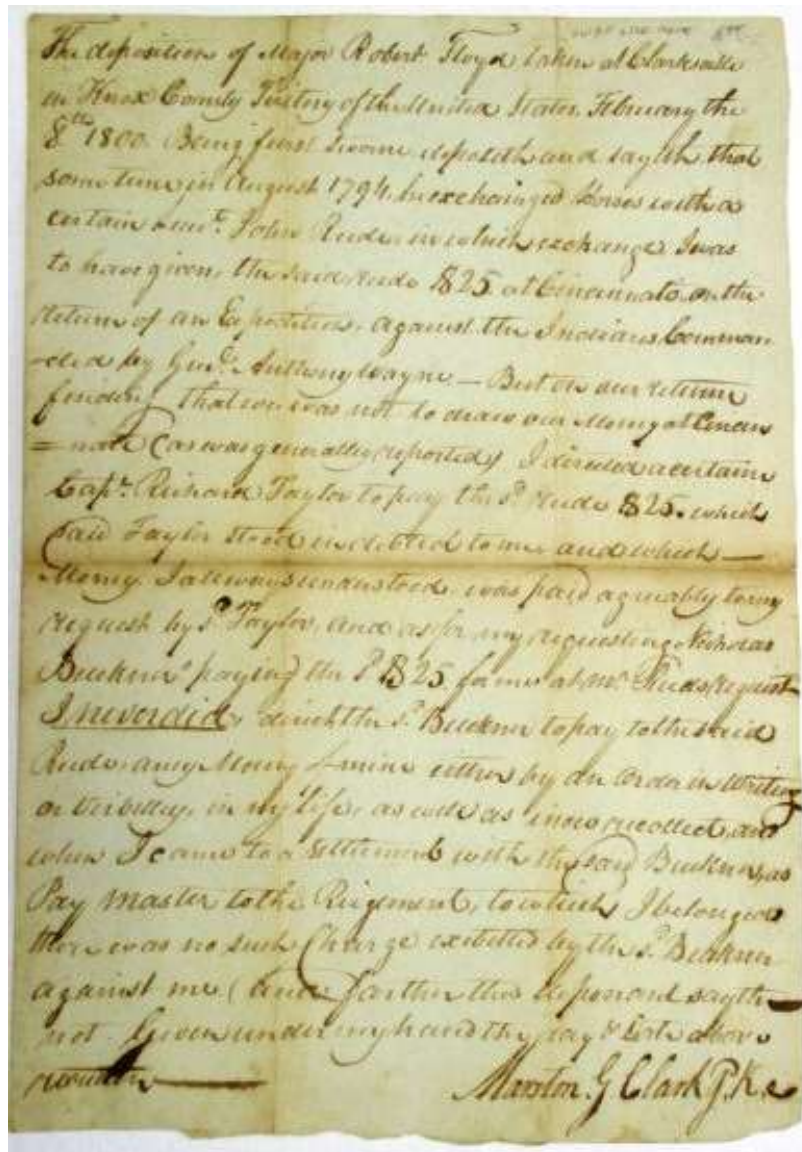 The deposition of Major Robert Floyd taken at Clarksville
in Knox County Teritory of the United States, February the
8th 1800. Being first Sworn deposeth and sayeth that
some time in August 1794, he exchainged Horses with a
certain Lieut. John Rude, in which exchange I was
to have given the said Rude $25 at Cincinnati on the
return of an Expedition against the Indians Comman
-ded by Genl. Anthony Wayne — But on our return
finding that we was not to draw our Money at Cincin
=nati (as was generally reported) I directed a certain
Capt. Richard Taylor to pay the sd. Rude $25. which
said Taylor stood indebted to me and which —
Money I allways understood, was paid agreably to my
request by sd. Taylor, and as for my requesting Nicholas
Buckner paying the sd. $25 for me at Mr. Ruds request
I never did direct the sd. Buckner to pay to the said
Rude, any Money of mine either by an order in Writing
or verbelly, in my life, as well as I now recollect, and
when I came to a Settlement with the said Buckner, as
Pay Master to the Regement, to which I belonged
there was no such Charge exibetted by the sd. Buckner
against me (and farther this deponant sayth
not Given under my hand the day & date above
written —
Marston. G Clark J.K.c